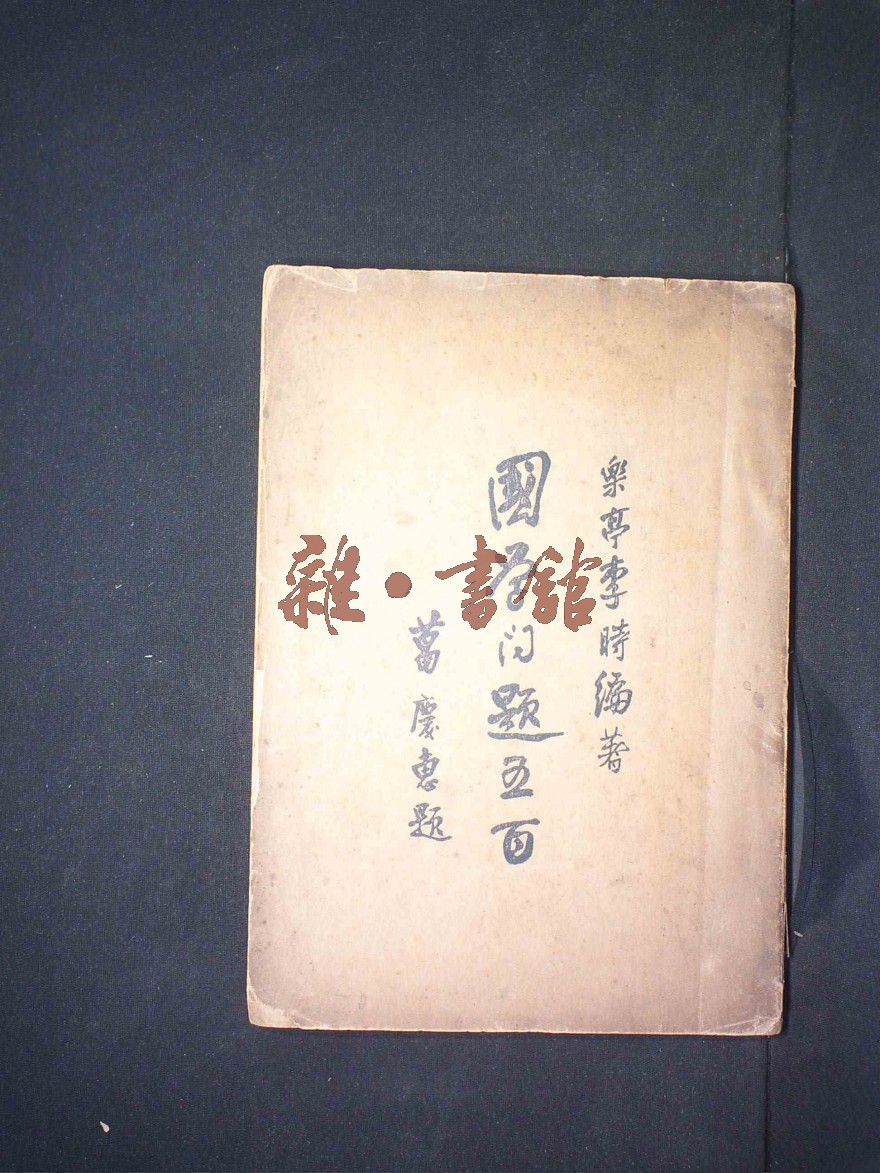 樂亭李時編著
國學問題五百
葛慶惠題
雜·書館